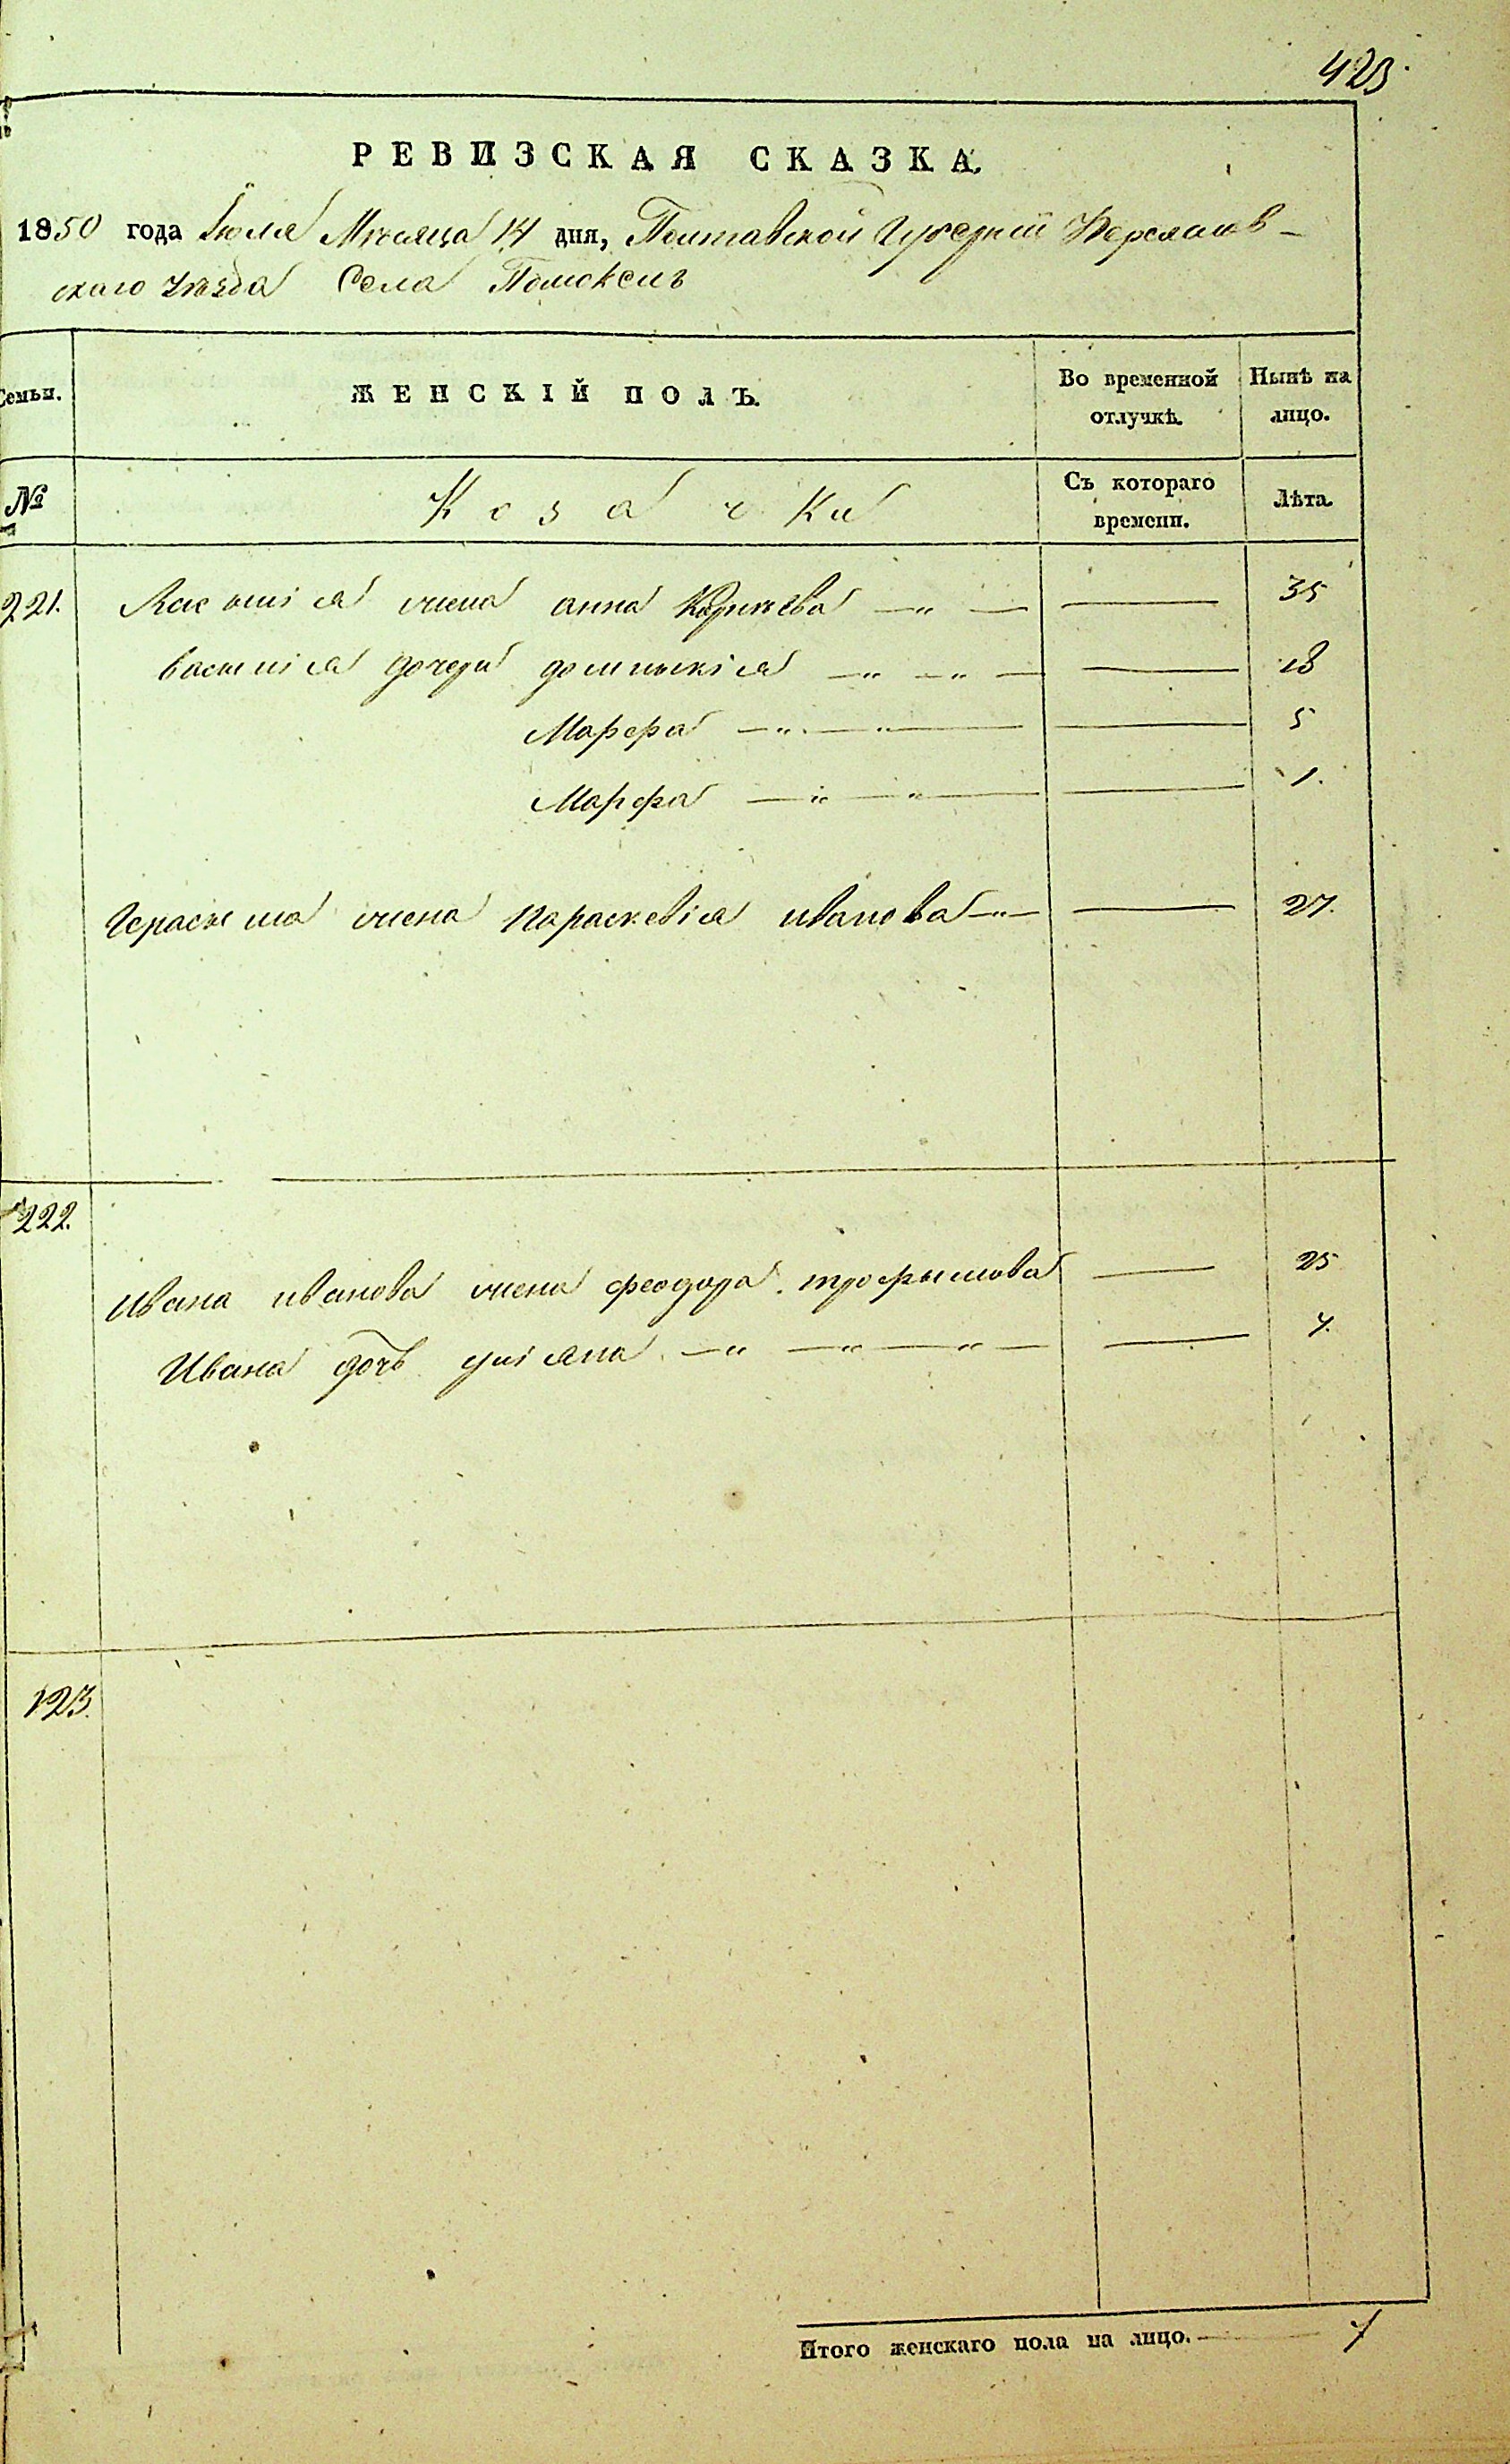 423.
РЕВИЗСКАЯ СКАЗКА.
1850 года Іюля Мѣсяца 14 дня, Полтавской Губерніи Переяслав-
скаго уѣзда Села Помоклей
Семьи.
ЖЕНСКІЙ ПОЛЪ.
Во временной отлучкѣ.
Ныпѣ на лицо.
№
Козачки
Съ котораго времени.
Лѣта.
221. жена анна 35
Василія дочери домникія 18
Марфа 5
Марфа 1.
Герасима жена Параскевія иванова 27.
222.
Ивана иванова жена феодора трофымова 25
Ивана дочь уліяна 4.
123.
Итого женскаго пола на лицо. 7